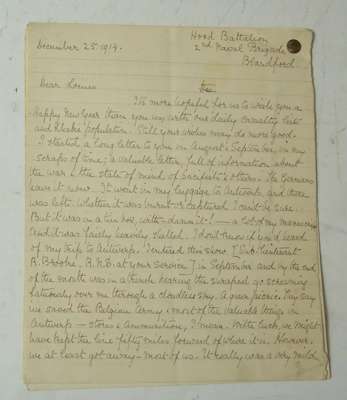 Hood Battalion
2nd Naval Brigade
Blandford.
December 25 1914.
Dear
It's more hopeful for us to wish you a
happy New Year than you us, with our daily casualty lists
and Khaki population. Still your wishes may do more good.
I started a long letter to you in August & September, in my
scraps of time; a valuable letter, full of information about
the war & the state of mind of pacifists & others. The Germans
have it now. It went in my luggage to Antwerp, and there
was left. Whether it was burnt or captured, I can't be sure.
But it was in a tin box, with — damn it! — a lot of my manuscript.
And it was fairly heavily shelled. I don't know if you'd heard
of my trip to Antwerp. I entered this show [Sub-Lieutenant
R. Brooke, R.N.D. at your service] in September and by the end
of the month was in a trench hearing the shrapnel go screaming
fatuously over me through a cloudless sky. A queer picnic. They say
we saved the Belgian army, & most of the valuable things in
Antwerp — stores & ammunition, I mean. With luck, we might
have kept the line fifty miles forward of where it is. However,
we at least got away — most of us. It really was a very mild